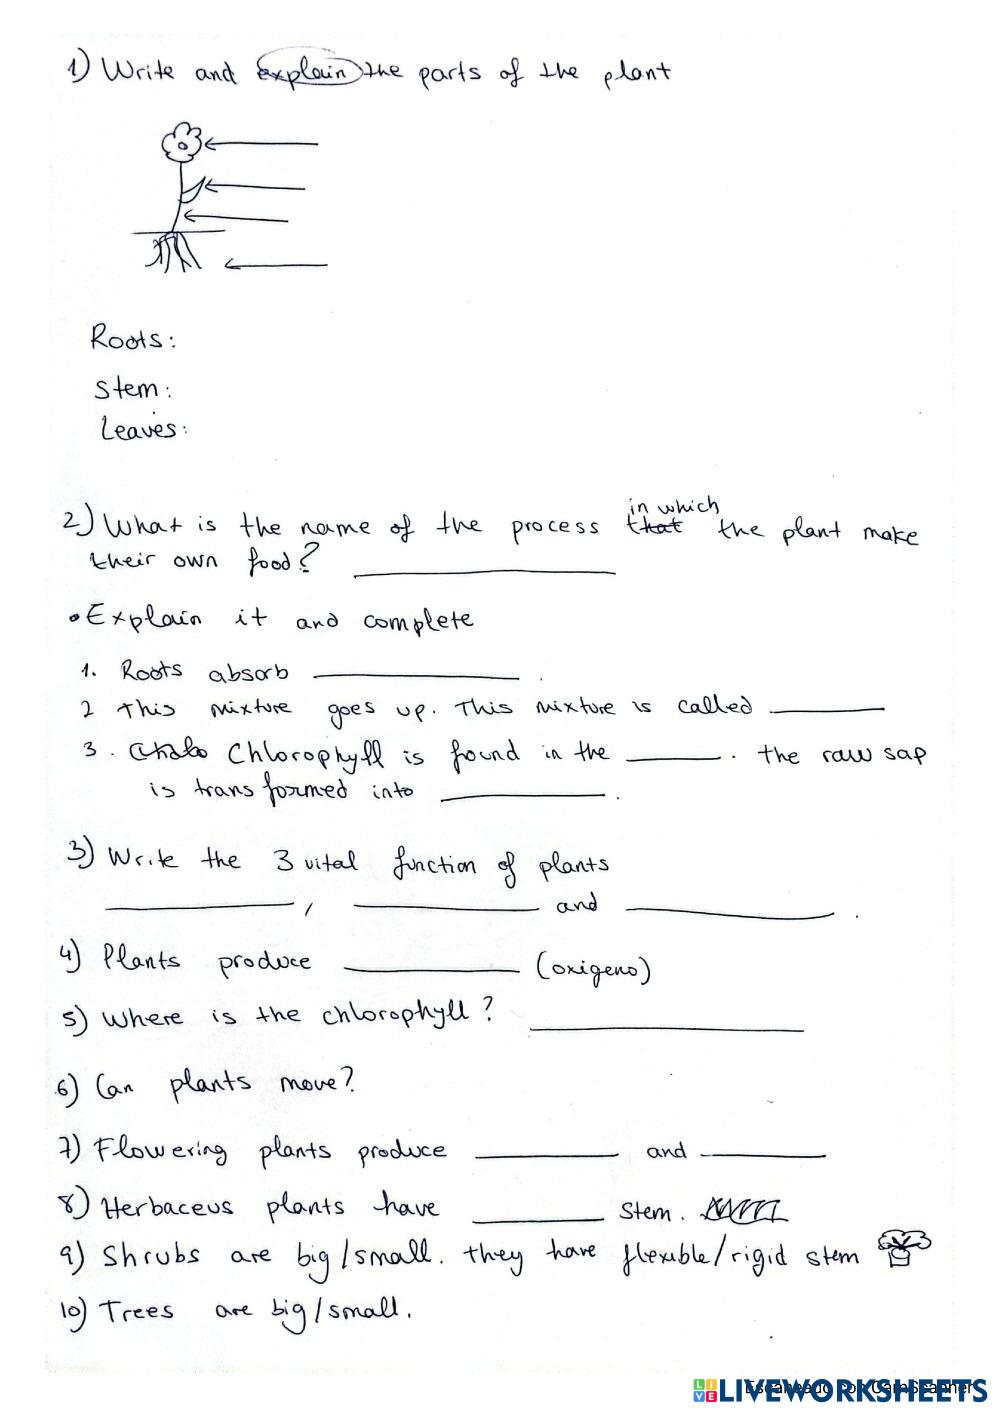 1) Write and explain the parts of the plant
Roots:
Stem:
Leaves:
in which
2) What is the name of the process that the plant make
their own food? ____________
• Explain it and complete
1. Roots absorb ____________ .
2 This mixture goes up. This mixture is called ________
3. Chlorophyll is found in the ________ . the raw sap
is transformed into ____________ .
3) Write the 3 vital function of plants
____________ , ____________ and ____________ .
4) Plants produce ____________ (oxigeno)
5) Where is the chlorophyll? ____________
6) Can plants move?
7) Flowering plants produce ________ and ________
8) Herbaceus plants have ________ stem.
9) Shrubs are big/small. they have flexible/rigid stem
10) Trees are big/small.
Escaneado con CamScanner
LIVEWORKSHEETS